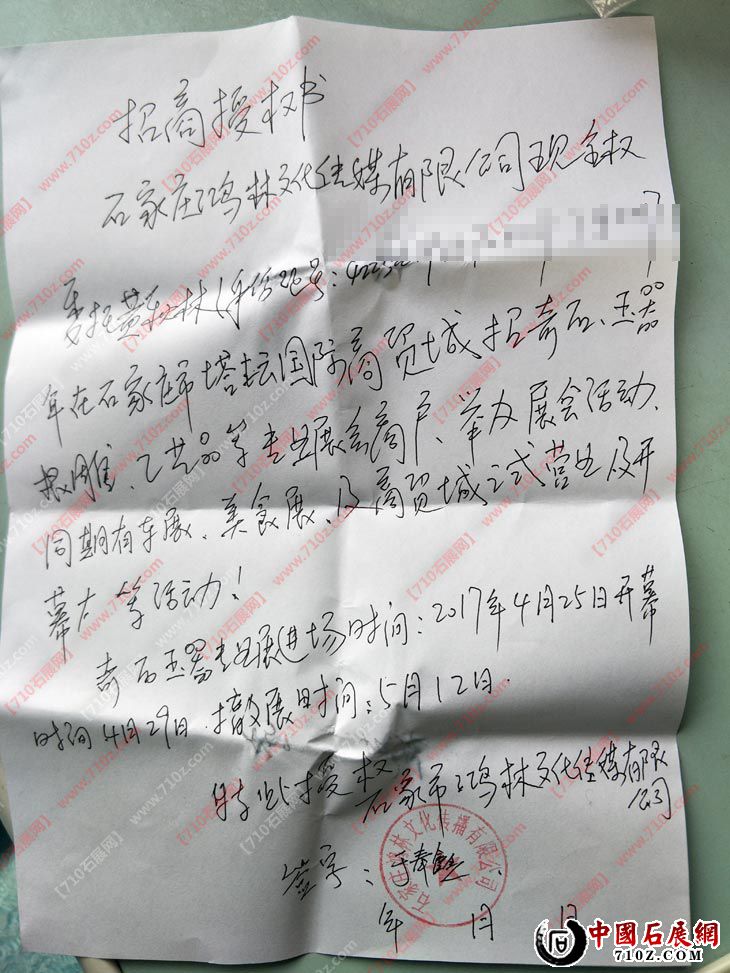 招商授权书
石家庄鸿林文化传媒有限公司现全权
委托黄 林(身份证号:
年在石家庄市塔坛国际商贸城招奇石、玉器
根雕、工艺品等专业展会商户、举办展会活动、
同期有车展、美食展、及商贸城正式营业及开
幕大 等活动!
奇石玉器专业展进场时间:2017年4月25日开幕
时间4月29日.撤展时间:5月12日.
特此授权
石家市鸿林文化传媒有限
公司
签字:
年 月 日
石家庄鸿林文化传播有限公司
【710石展网】www.710z.com
中國石展網
710Z.COM